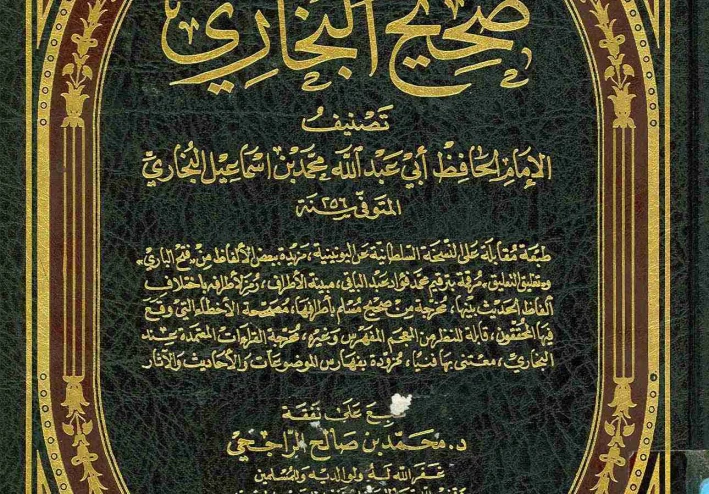 صحيح البخاري
تصنيف
الإمام الحافظ أبي عبد الله محمد بن اسماعيل البخاري
المتوفى سنة ٢٥٦
طبعة مقابلة على النسخة السلطانية عن اليونينية، مزيدة بعض الألفاظ من «فتح الباري»
و«تغليق التعليق»، مرقمة بترقيم محمد فؤاد عبد الباقي، مبينة الأطراف، رمز لأطرافه باختلاف
ألفاظ الحديث بينها، مخرجة من صحيح مسلم بأطرافها، مصححة الأخطاء التي وقع
فيها المحققون، قابلة للنظر من المعجم المفهرس وغيره، مخرجة القراءات المعتمدة عند
البخاري، معتنى بها فنيا، مزودة بفهارس للموضوعات والأحاديث والآثار
طبع على نفقة
د. محمد بن صالح الراجحي
غفر الله له ولوالديه وللمسلمين